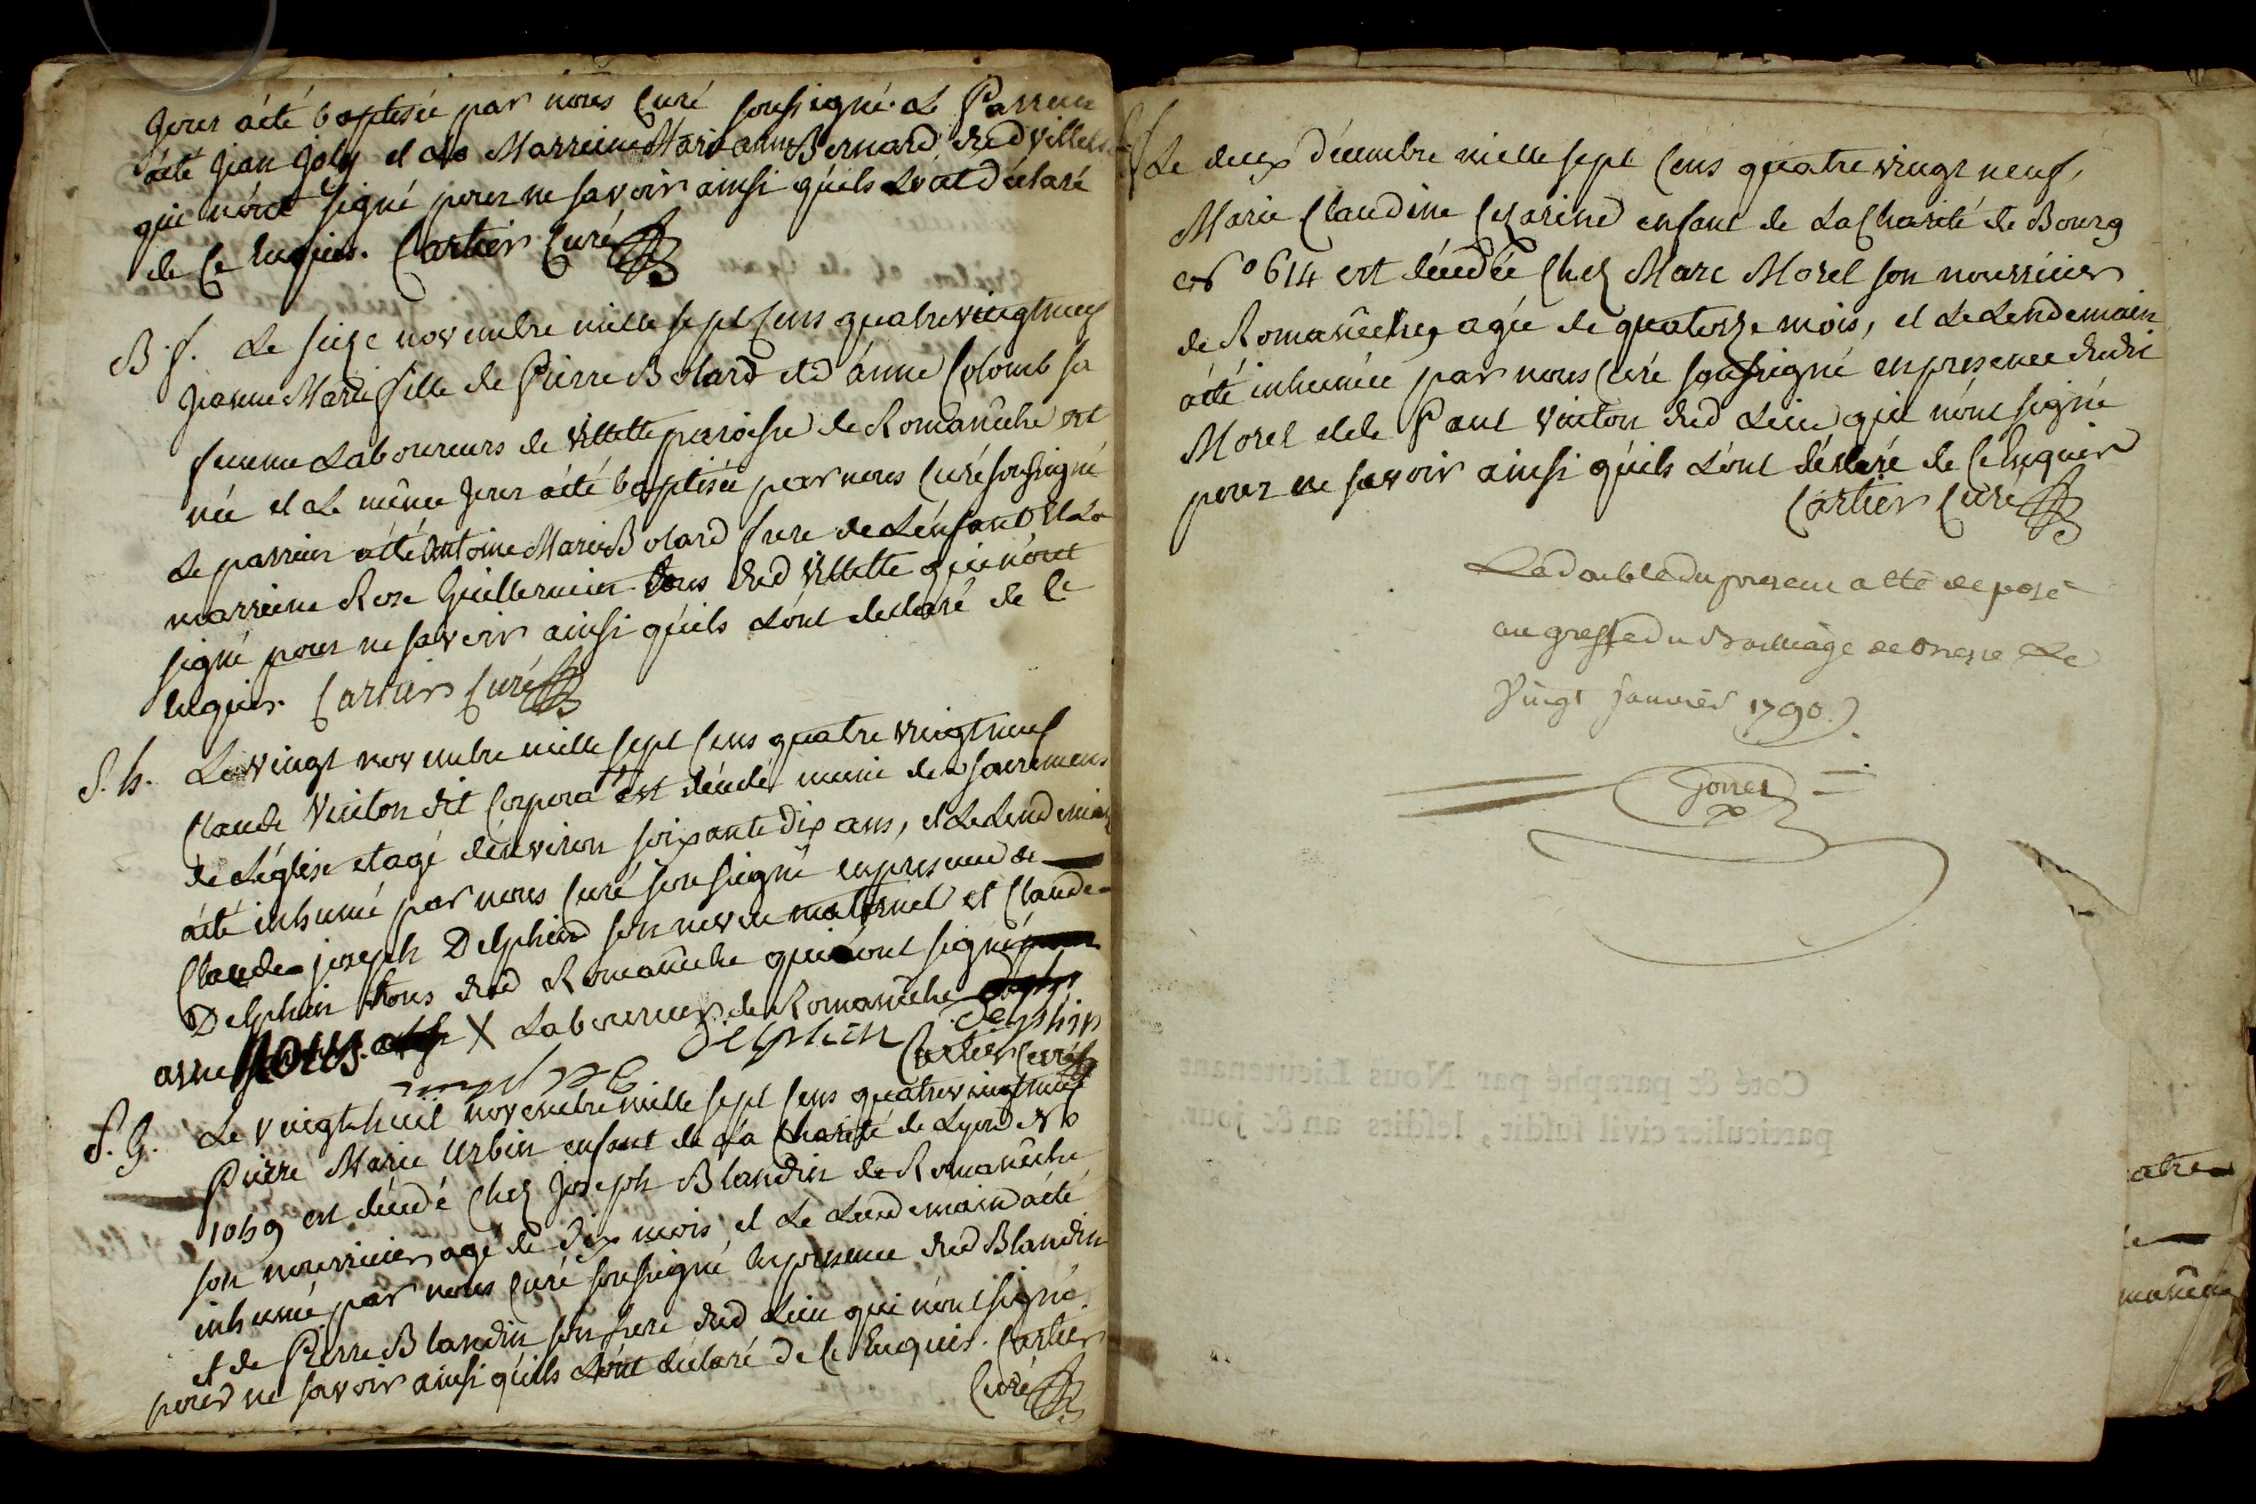 Jour a été baptisée par nous Curé soussigné. Le Parrein
a été Jean Joly et La Marreine Marianne Bernard dud Villette
qui n'ont signé pour ne savoir ainsi qu'ils L'ont déclaré
de Ce Enquis. Cartier Curé
B. f. Le seize novembre mille sept Cens quatrevingtneuf
Jeanne Marie fille de Pierre Bolard et d'anne Colomb sa
femme Laboureurs de Villette paroisse de Romanêche est
née et Le même Jour a été baptisée par nous Curé soussigné
Le parrein a été Antoine Marie Bolard frere de L'enfant et La
marreine Rose Guillermin tous dud Villette qui n'ont
signé pour ne savoir ainsi qu'ils L'ont declaré de Ce
Enquis. Cartier Curé
S. h. Le vingt novembre mille sept Cens quatre vingtneuf
Claude Vuiton dit Corpora est décédé muni des sacremens
de L'église et agé d'environ soixante dix ans, et Le Lendemain
a été inhumé par nous Curé soussigné en presence de
Claude joseph Delphin son neveu maternel et Claude
Delphin tous dud Romanêche qui ont signé
avec nous X Laboureurs de Romanêche
Delphin Delphin
Cartier Curé
S. G. Le vingthuit novembre mille sept Cens quatrevingtneuf
Pierre Marie Urbin enfant de La Charité de Lyon N°
1069 est décédé Chez Joseph Blandin de Romanêche
son nourricier agé de dix mois, et Le Lendemain a été
inhumé par nous Curé soussigné en presence dud Blandin
et de Pierre Blandin son frere dud Lieu qui n'ont signé
pour ne savoir ainsi qu'ils L'ont déclaré de Ce Enquis. Cartier
Curé
Le deux décembre mille sept Cens quatre vingt neuf,
Marie Claudine Cezarine enfant de La Charité de Bourg
N° 614 est décedée Chez Marc Morel son nourricier
de Romanêche, agée de quatorze mois, et Le Lendemain
a été inhumée par nous Curé soussigné en presence dudit
Morel et de Paul Vuiton dud Lieu qui n'ont signé
pour ne savoir ainsi qu'ils L'ont déclaré de Ce Enquis
Cartier Curé
Le double du present a été deposé
au greffe du Bailliage de Bresse Le
Vingt janvier 1790.
Coté & paraphé par Nous Lieutenant
particulier civil susdit, lesdits an & jour.